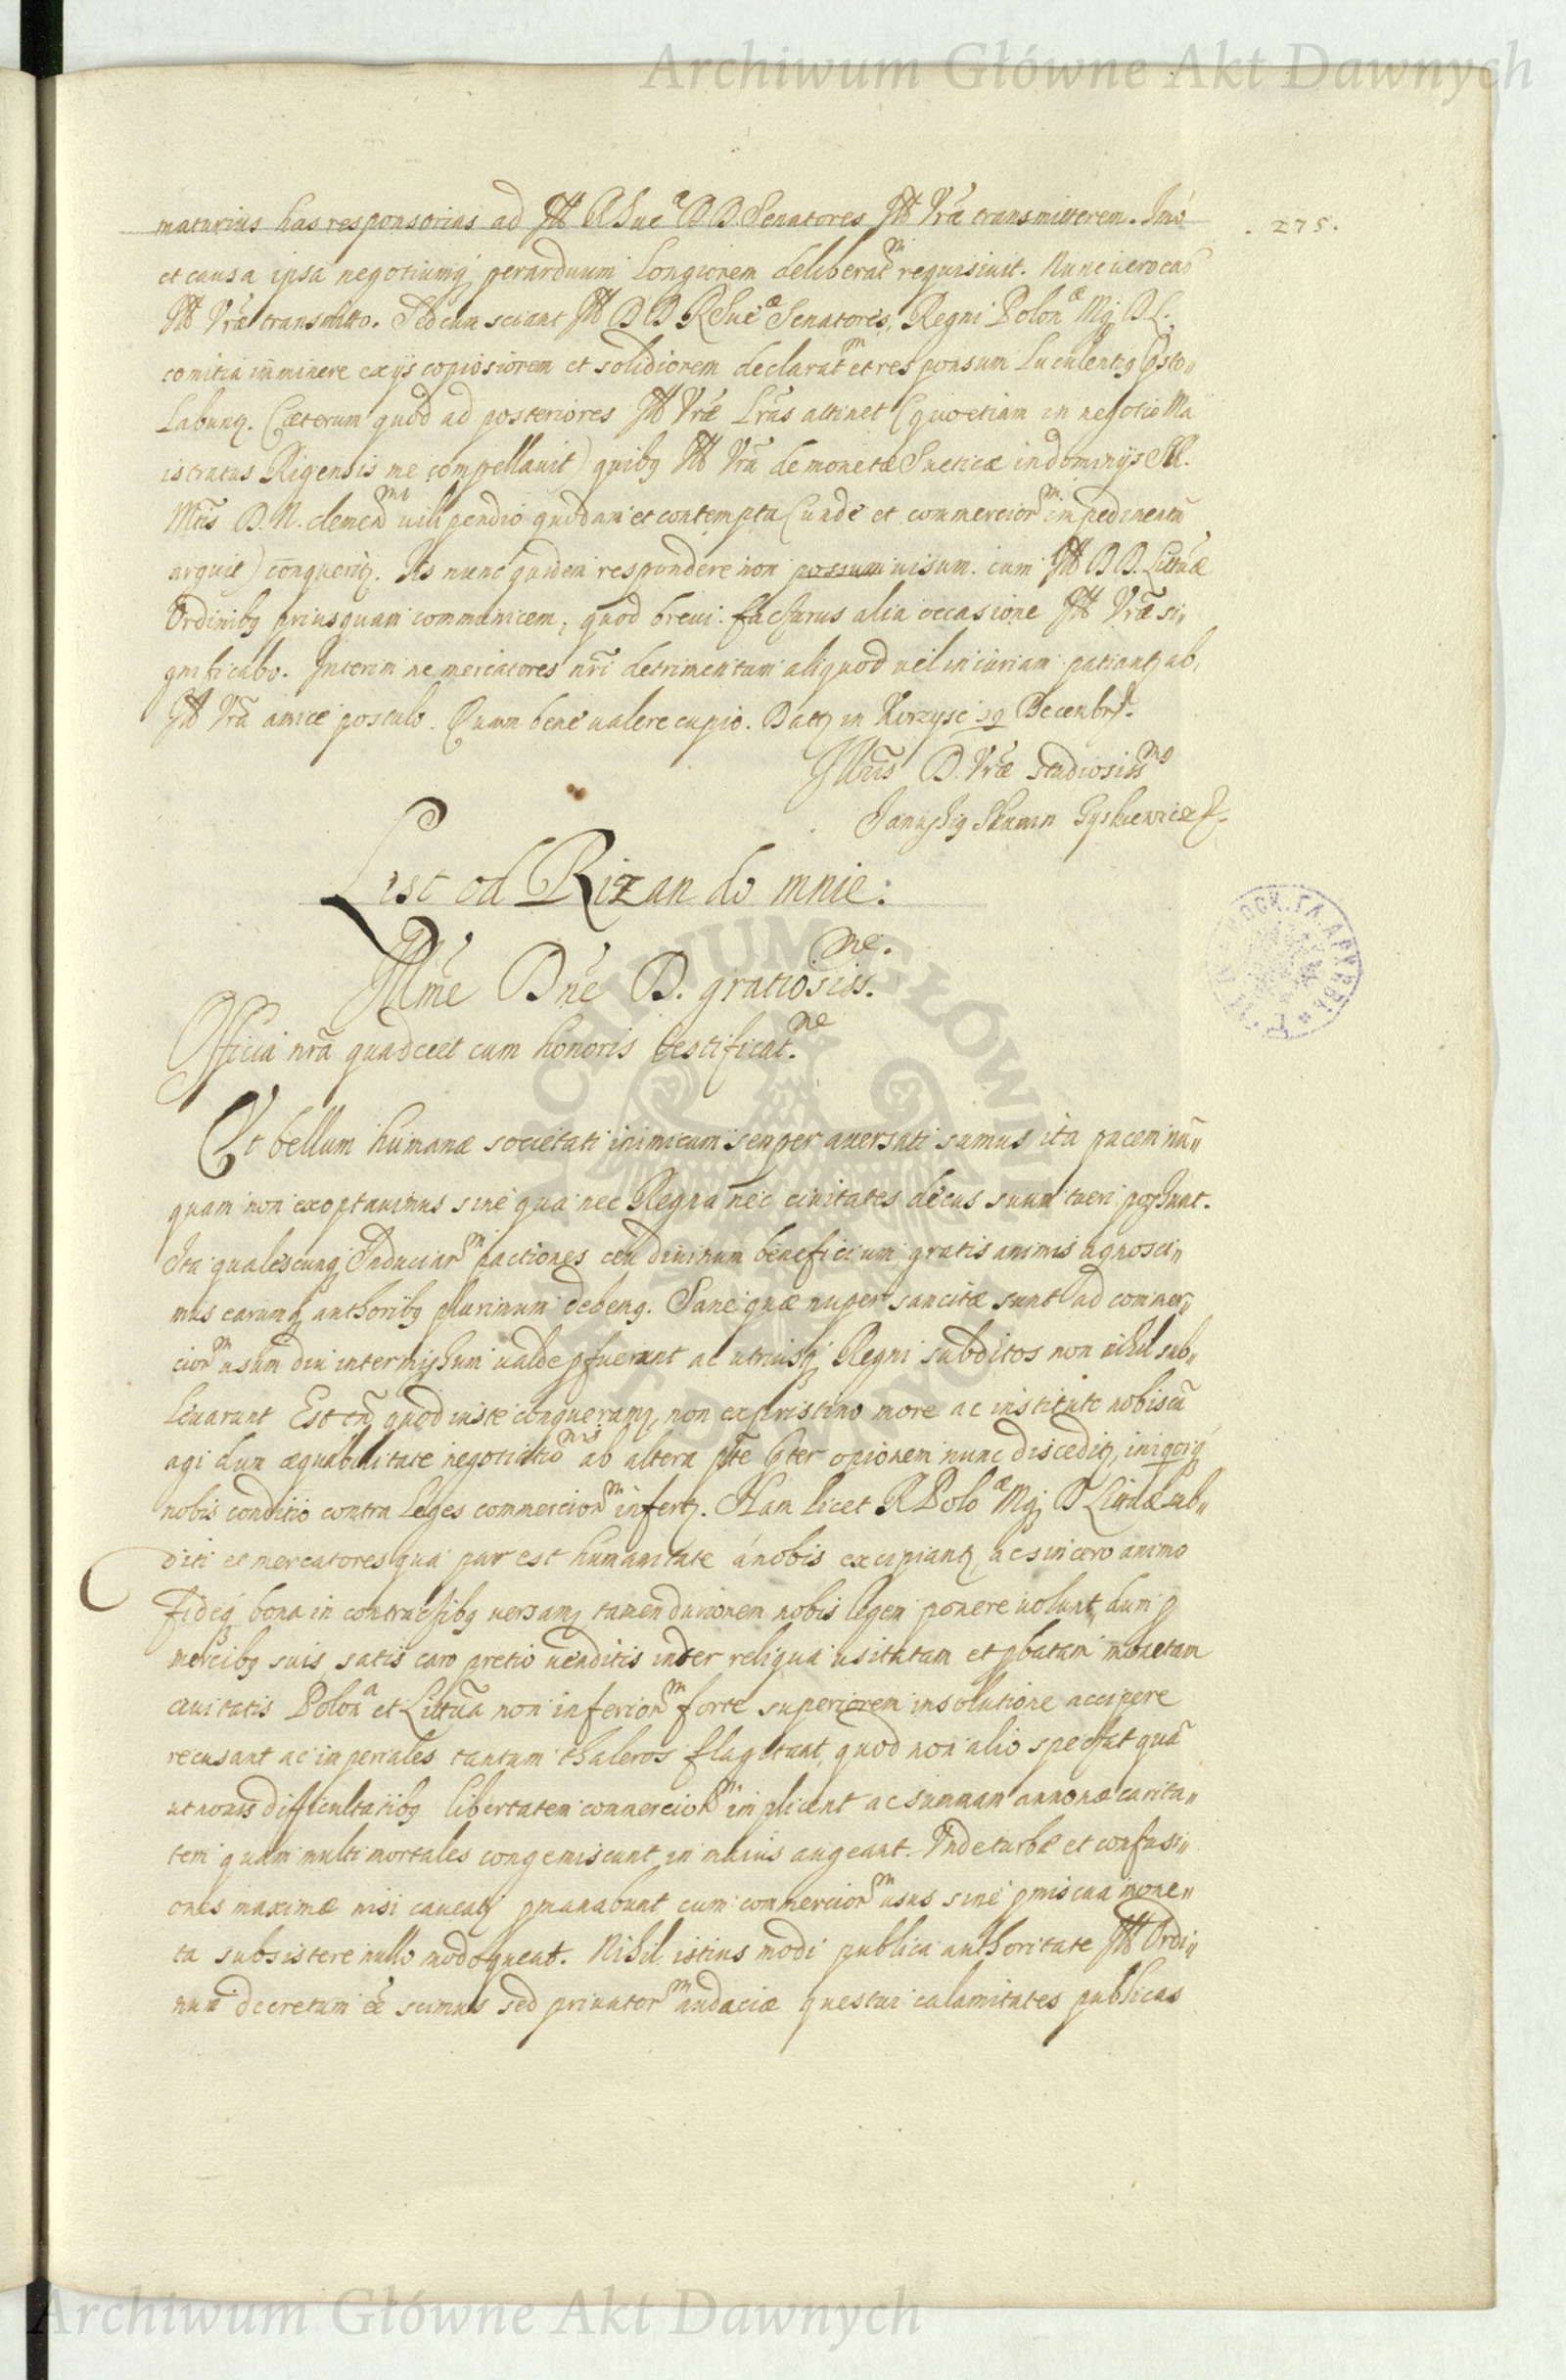 Archiwum Główne Akt Dawnych
maturius has responsorias ad Ill R Suec DD. Senatores Ill Vrae transmitterem. Imo
. 275.
et causa ipsa negotiumq perarduum longiorem deliberatm requisiuit. Nunc uero eas
Ill Vrae transmitto. Sed cum sciant Ill DD R Sueae Senatores, Regni Polonae Mq D L.
comitia imminere ex ijs copiosiorem et solidiorem declaratm et responsum luculentiq psto„
labunt. Caeterum quod ad posteriores Ill Vrae Lras attinet (quo etiam in negotio Ma
istratus Rigensis me compellauit) quibq Ill Vra de monetae Sueticae in dominijs SR.
Mtis D. N. clemen mi uili pendio quodam et contemptu (unde et commercior m impedimentu
arguit) conquerit. Iis nunc quidem respondere non possum uisum. cum Ill DD. Littuae
Ordinibq priusquam communicem; quod breui facturus alia occasione Ill Vrae si„
gnificabo. Interim ne mercatores nri detrimentum aliquod uel iniuriam patiant, ab
Ill Vra amice postulo. Quam bene ualere cupio. Datt in Korzysc 29 Decembr.
Illris D. Vrae studiosiss mq
Janussiq Skumin Tyskiewicz
List od Rizan do mnie:
Illme Dne D. gratiosiss. me.
Officia nra qua decet cum honoris testificat. ne
Ut bellum humanae societati inimicum semper auersati sumus ita pacem nu„
quam non exoptauimus sine qua nec Regna nec ciuitates decus suum tueri possunt.
Ita qualescunq Induciar m pactiones ceu diuinum beneficium gratis animis agnosci„
mus earumq authoribq plurimum debemq. Sane quae nuper sancitae sunt ad commer„
cior m usum diu intermissum ualde pfuerunt ac utriusq Regni subditos non nihil sub„
leuarunt Est tn quod iuste conqueramq, non ex pristino more ac instituto nobiscu
agi dum aequabilitate negotiatio nis ab altera pte pter opionem nunc discedit, iniqorq
nobis conditio contra leges commercior m infert. Nam licet R Polo ae Mq D Littuae sub„
diti et mercatores qua par est humanitate á nobis excipiant, ac sincero animo
fideq bona in contractibq uersamq tamen duriorem nobis legem ponere uolunt, dum p
mercibq suis satis caro pretio uenditis inter reliqua usitatam et pbatam monetam
ciuitatis Polon a et Littua non inferior m forte superiorem in solutione accipere
recusant ac imperiales tantum thaleros flagitant, quod non alio spectat qua
ut nouis difficultatibq libertatem commercior m implicent ac summam annonae carita„
tem quam multi mortales congemiscunt in maius augeant. Inde turbae et confusi„
ones maximae nisi caueat pmanabunt cum commercior m usus sine pmiscua mone„
ta subsistere nullo modo queat. Nihil istius modi publica authoritate Ill Ordi„
num decretum ee scimus sed priuator m audaciae questui calamitates publicas
Archiwum Główne Akt Dawnych